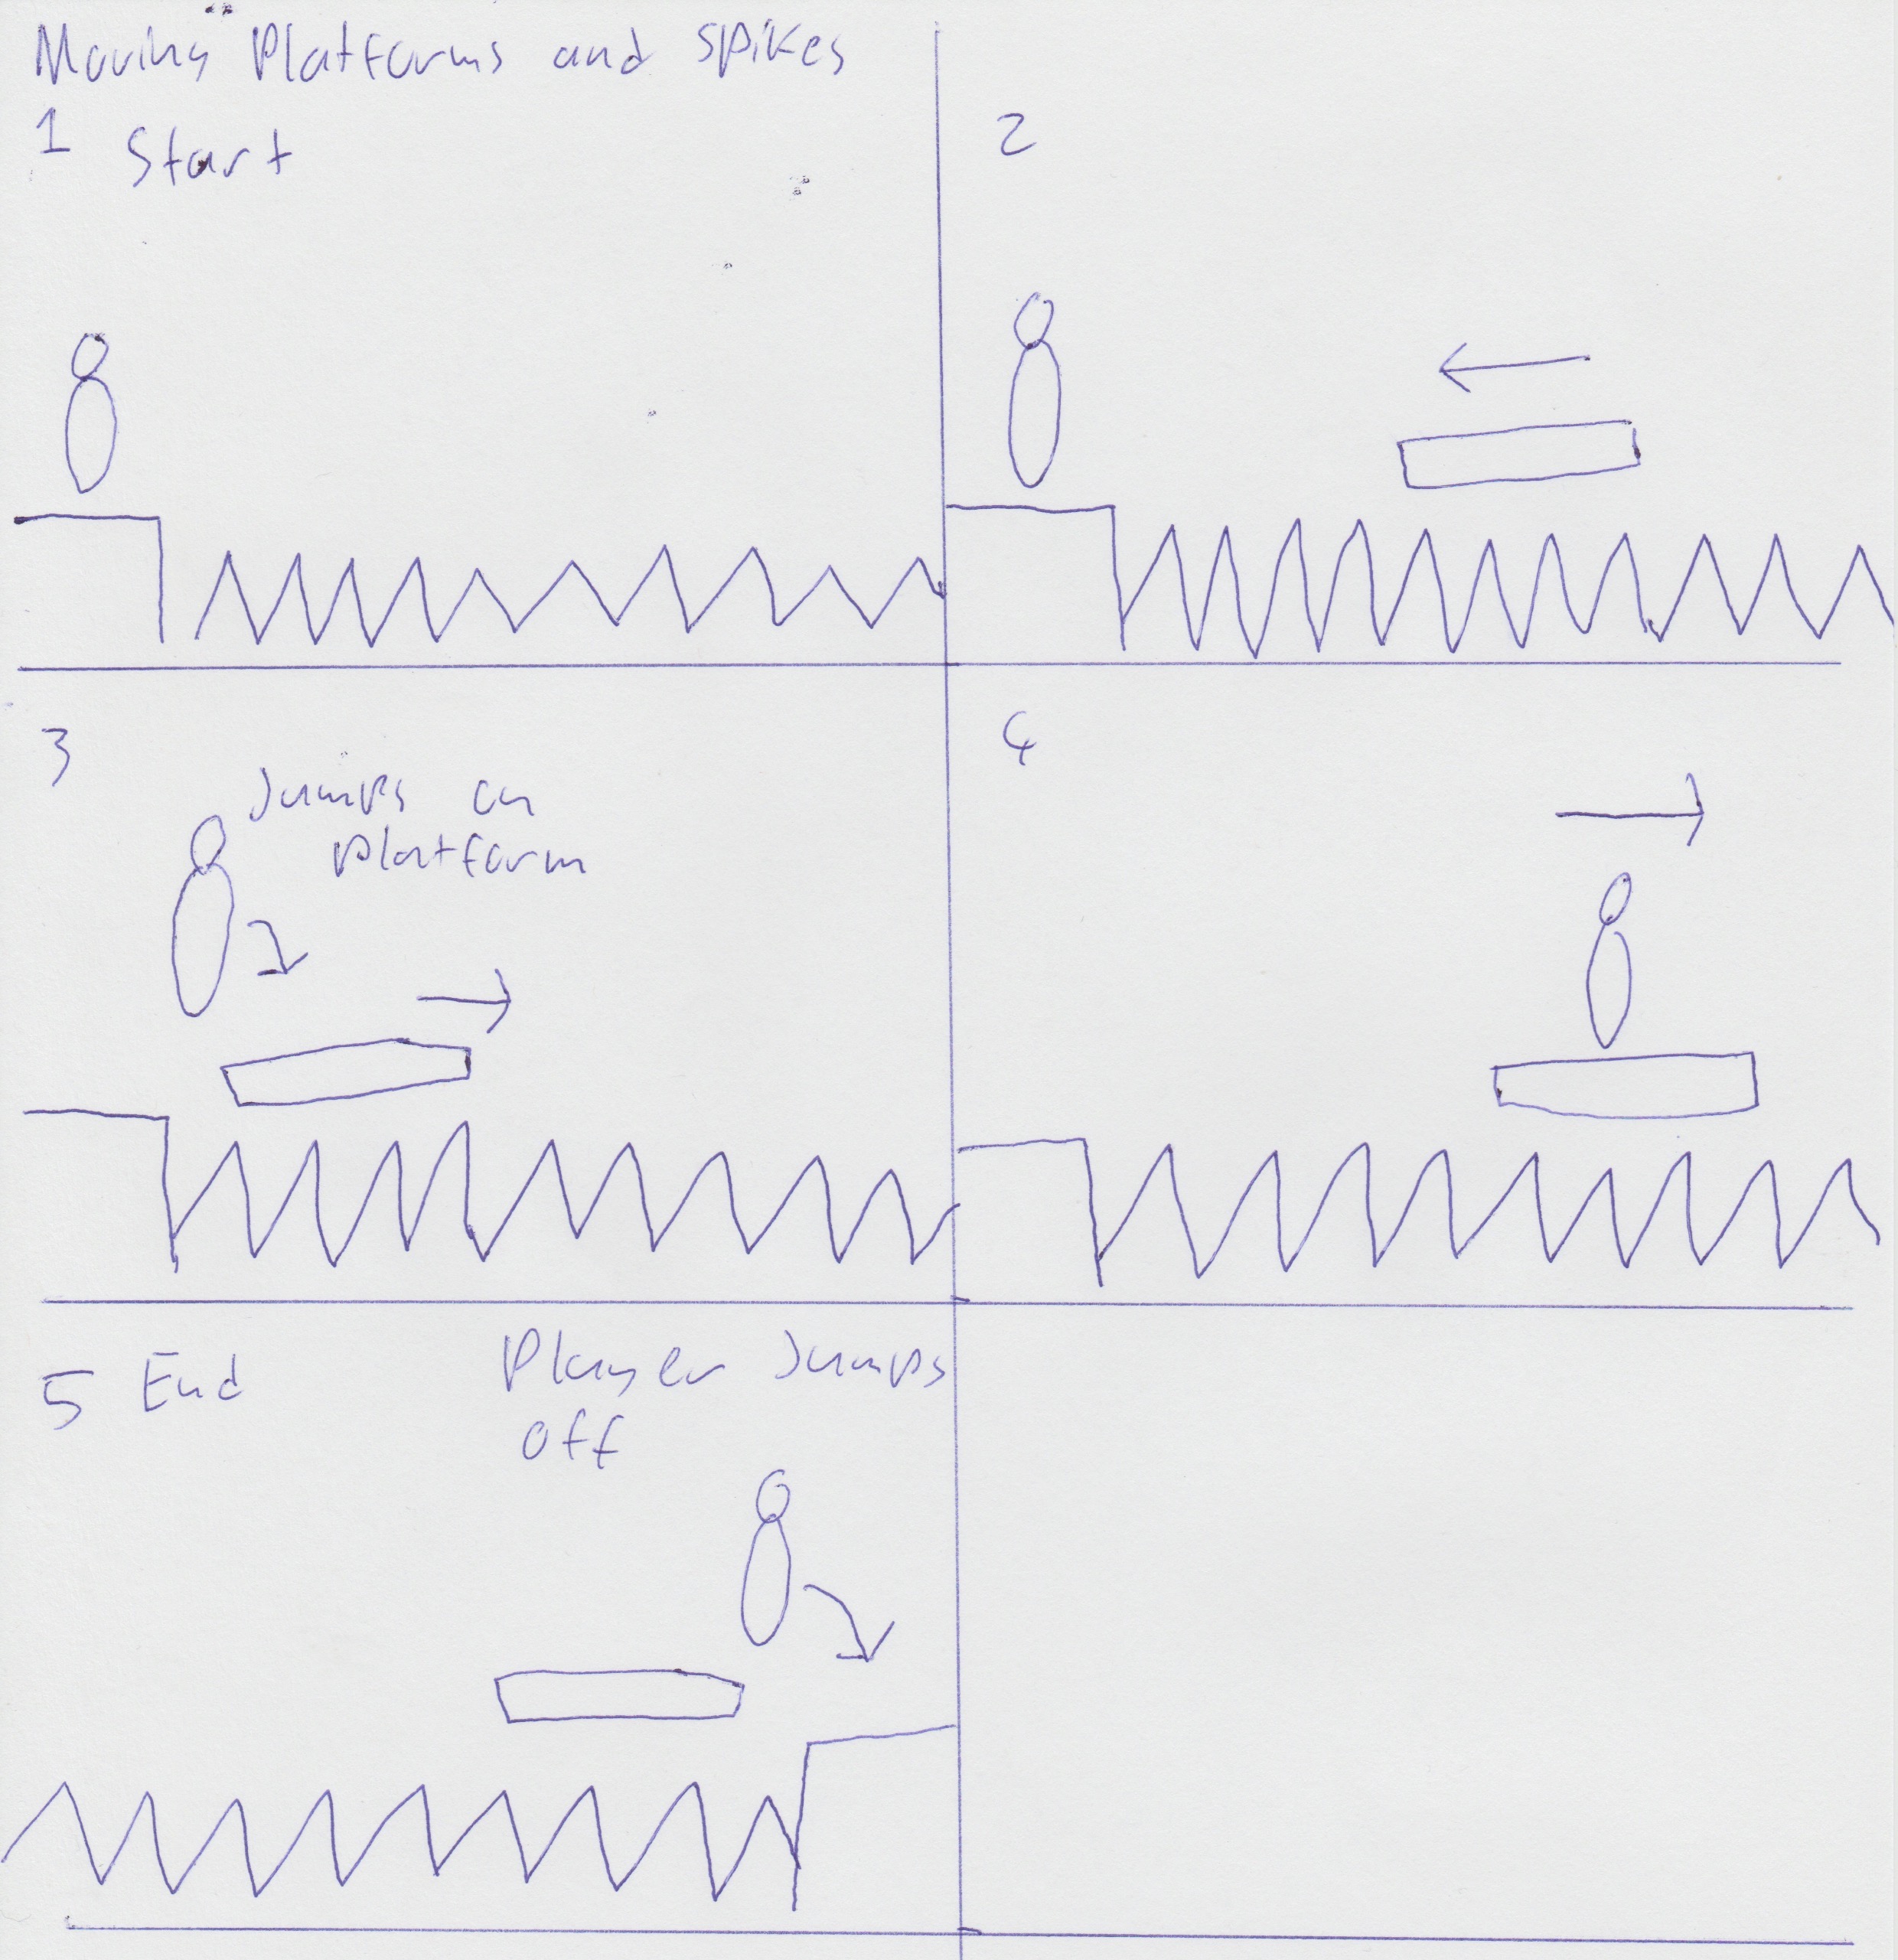 Moving Platforms and spikes
1 Start
2
3
Jumps on
platform
4
5 End
Player Jumps
off